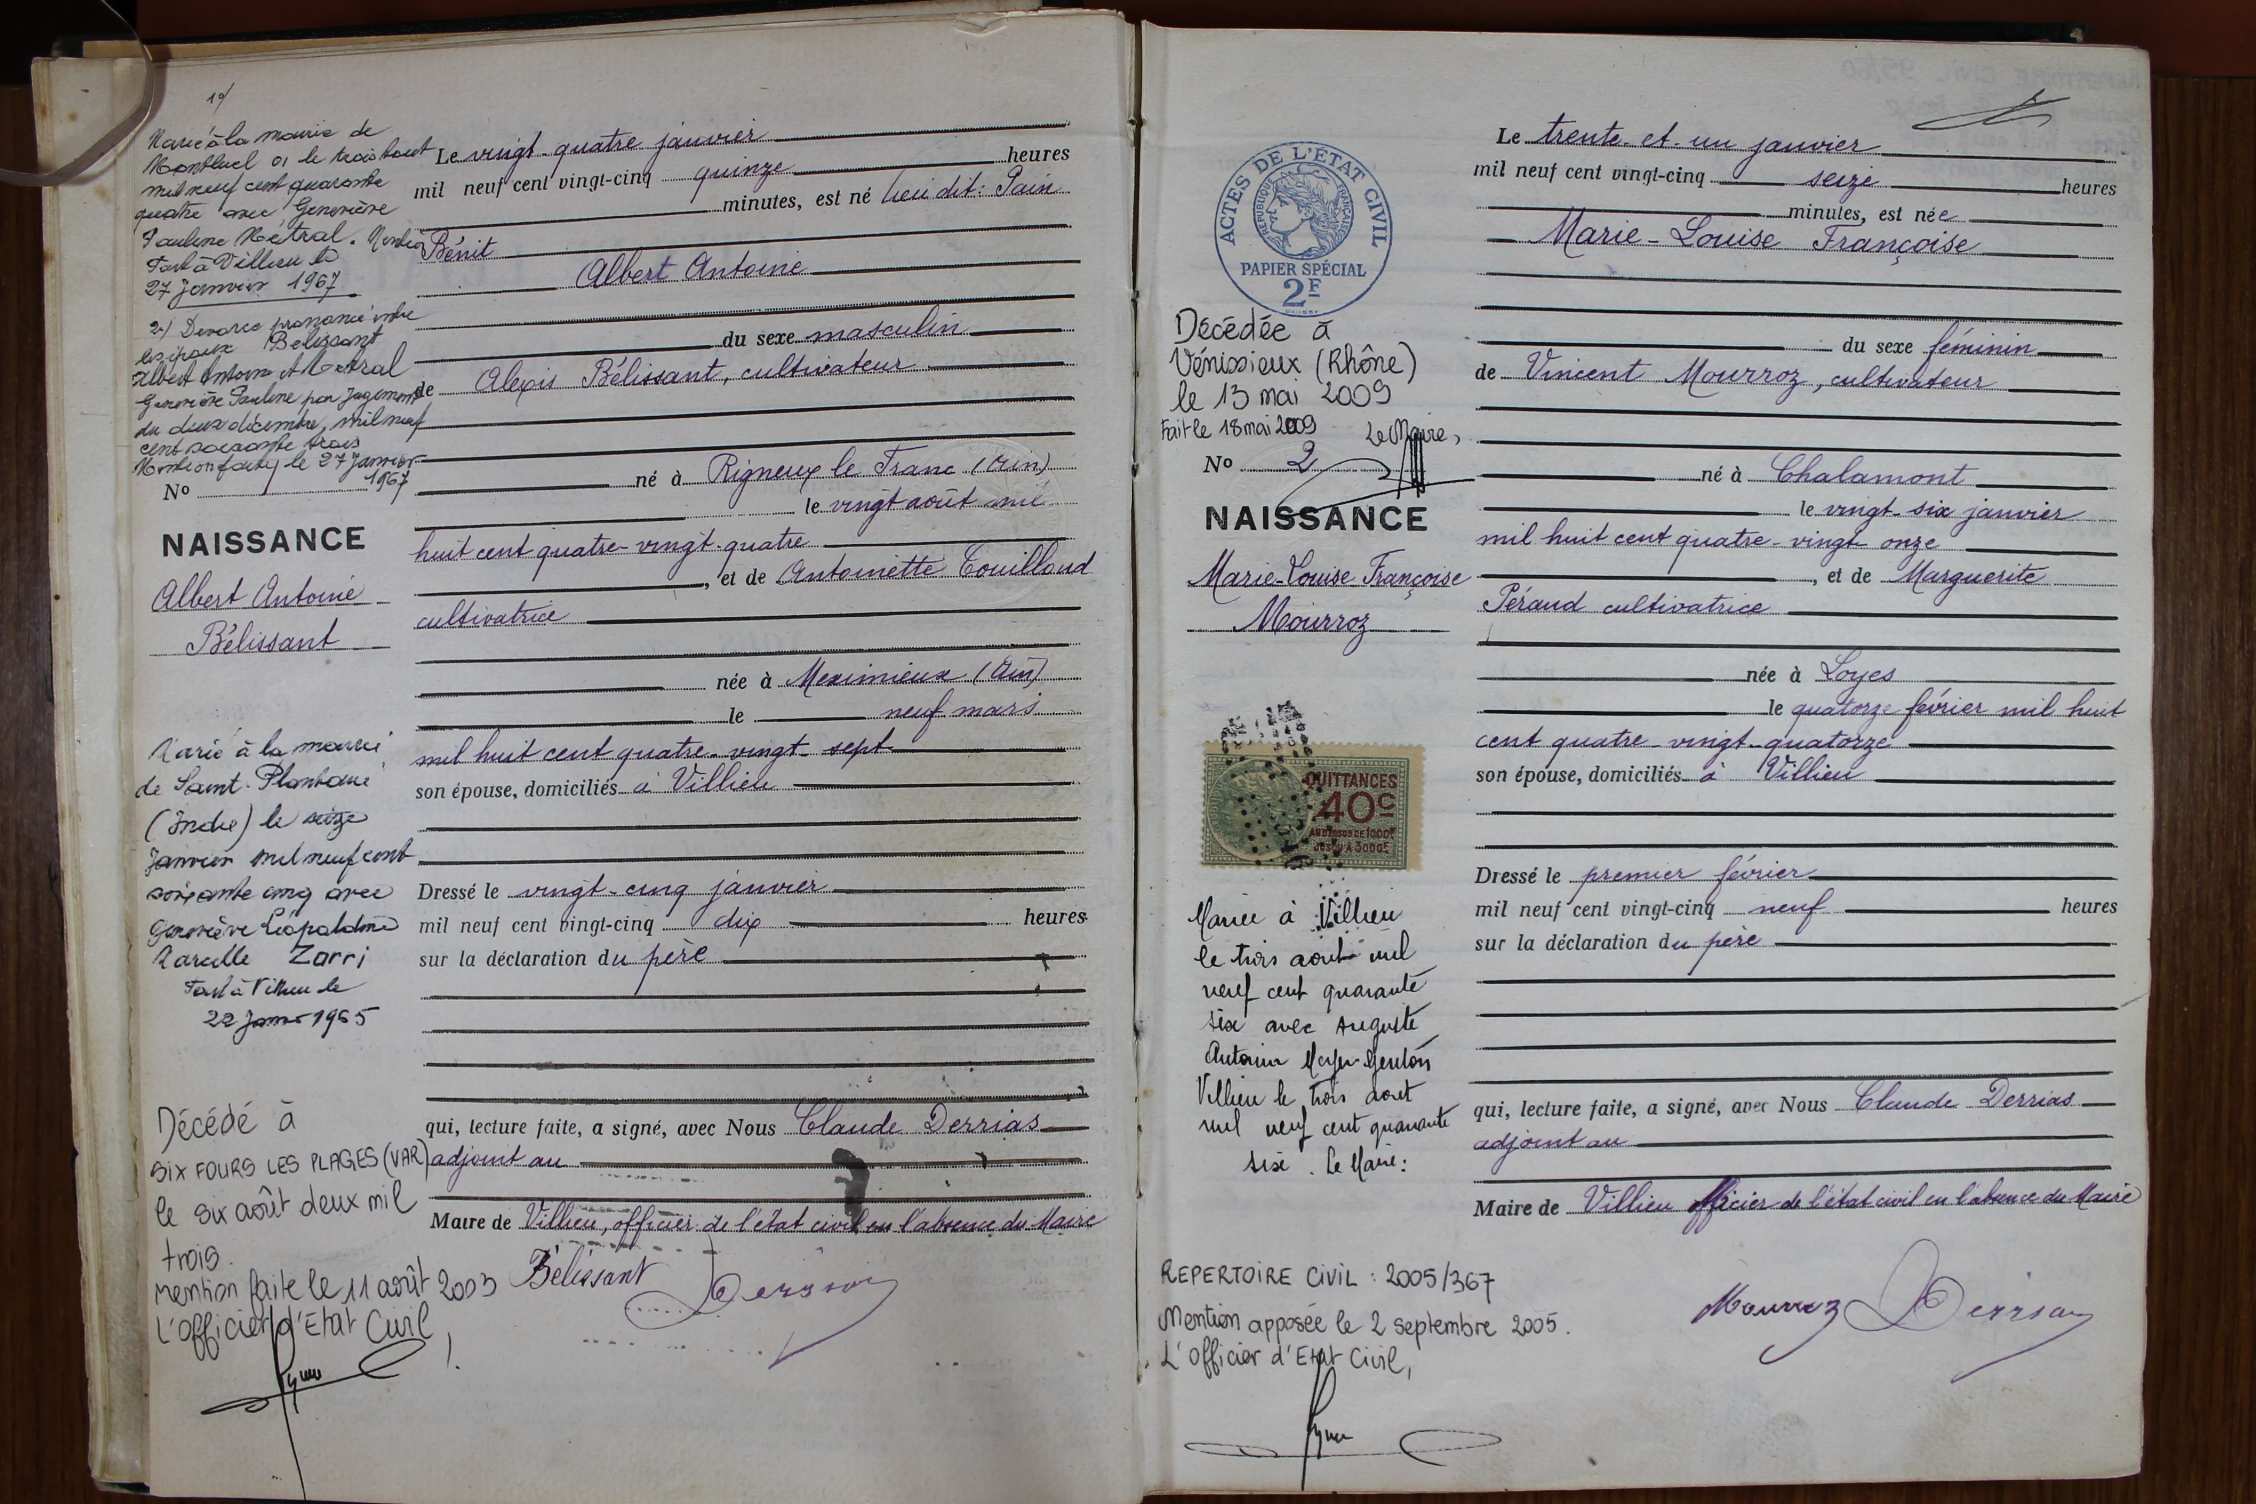 1°/
Marié à la mairie de
Montluel 01 le trois aout
mil neuf cent quarante
quatre avec Geneviève
Pauline Métral. Mention
Fait à Villieu le
27 Janvier 1967
2°/ Divorce prononcé entre
les époux Bélissant
Albert Antoine et Métral
Geneviève Pauline par Jugement
du deux décembre, mil neuf
cent soixante trois
Mention faite le 27 Janvier
1967
No
NAISSANCE
Albert Antoine
Bélissant
Marié à la mairie
de Saint-Plantaire
(Indre) le seize
Janvier mil neuf cent
soixante cinq avec
Geneviève Léopoldine
Marcelle Zarri
Fait à Villieu le
22 Janvier 1965
Décédé à
SIX FOURS LES PLAGES (VAR)
le six août deux mil
trois.
mention faite le 11 août 2003
L'officier d'Etat Civil,
Le vingt-quatre janvier
mil neuf cent vingt-cinq quinze heures
minutes, est né lieu dit: Pain
Bénit
Albert Antoine
du sexe masculin
de Alexis Bélissant, cultivateur
né à Rigneux le Franc (Ain)
le vingt août mil
huit cent quatre-vingt-quatre
, et de Antoinette Touilloud
cultivatrice
née à Meximieux (Ain)
le neuf mars
mil huit cent quatre-vingt-sept
son épouse, domiciliés à Villieu
Dressé le vingt-cinq janvier
mil neuf cent vingt-cinq dix heures
sur la déclaration du père
qui, lecture faite, a signé, avec Nous Claude Derrias
adjoint au
Maire de Villieu, officier de l'état civil en l'absence du Maire
Bélissant Derrias
ACTES DE L'ÉTAT CIVIL
REPUBLIQUE FRANÇAISE
PAPIER SPÉCIAL
2F
Décédée à
Vénissieux (Rhône)
le 13 mai 2009
Fait le 18 mai 2009 Le Maire,
No 2
NAISSANCE
Marie-Louise Françoise
Mourroz
QUITTANCES
40c
AU DESSUS DE 1000F
JUSQU'A 3000F
Mariée à Villieu
le trois août mil
neuf cent quarante
six avec Auguste
Antonin Moyen-Genton
Villieu le trois août
mil neuf cent quarante
six. Le Maire:
REPERTOIRE CIVIL : 2005/367
Mention apposée le 2 septembre 2005.
L'officier d'Etat Civil,
Le trente-et-un janvier
mil neuf cent vingt-cinq seize heures
minutes, est née
Marie-Louise Françoise
du sexe féminin
de Vincent Mourroz, cultivateur
né à Chalamont
le vingt-six janvier
mil huit cent quatre-vingt onze
, et de Marguerite
Péraud cultivatrice
née à Loyes
le quatorze février mil huit
cent quatre-vingt-quatorze
son épouse, domiciliés à Villieu
Dressé le premier février
mil neuf cent vingt-cinq neuf heures
sur la déclaration du père
qui, lecture faite, a signé, avec Nous Claude Derrias
adjoint au
Maire de Villieu officier de l'état civil en l'absence du Maire
Mourroz Derrias